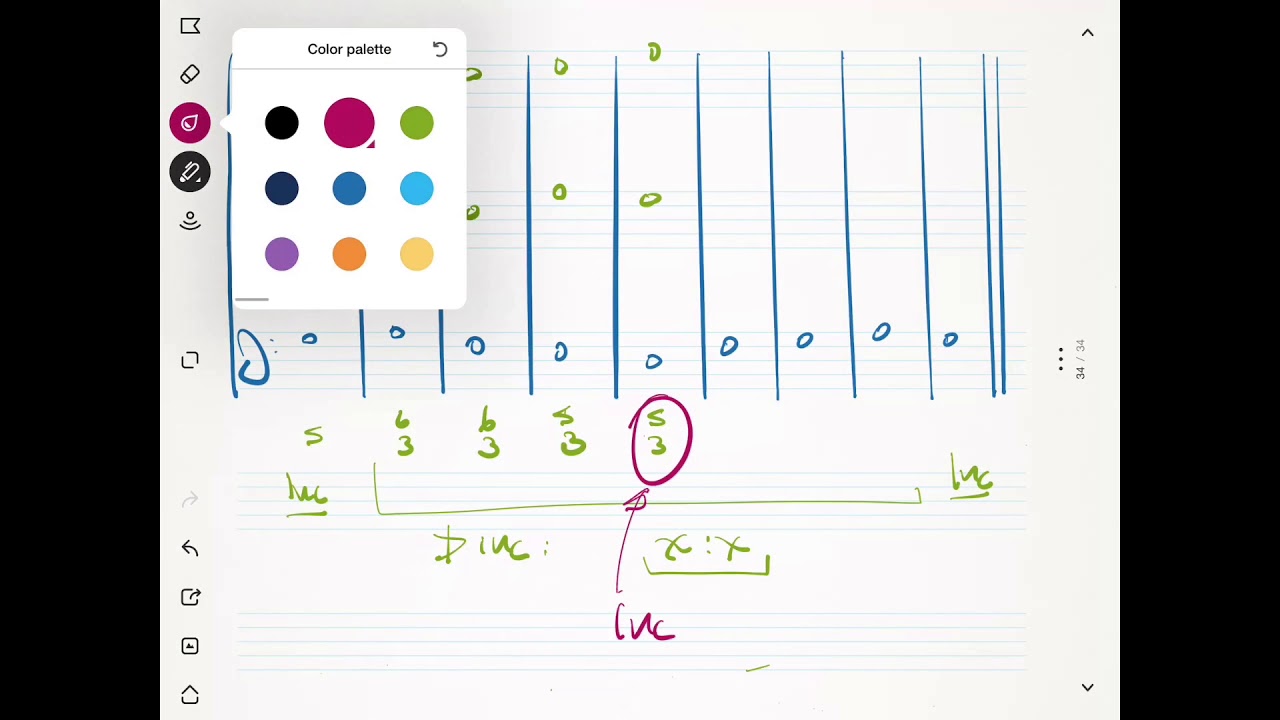 Color palette
34 / 34
D:
6 6 5 5
5 3 3 3 3
Inc Inc
D inc: x:x
Inc